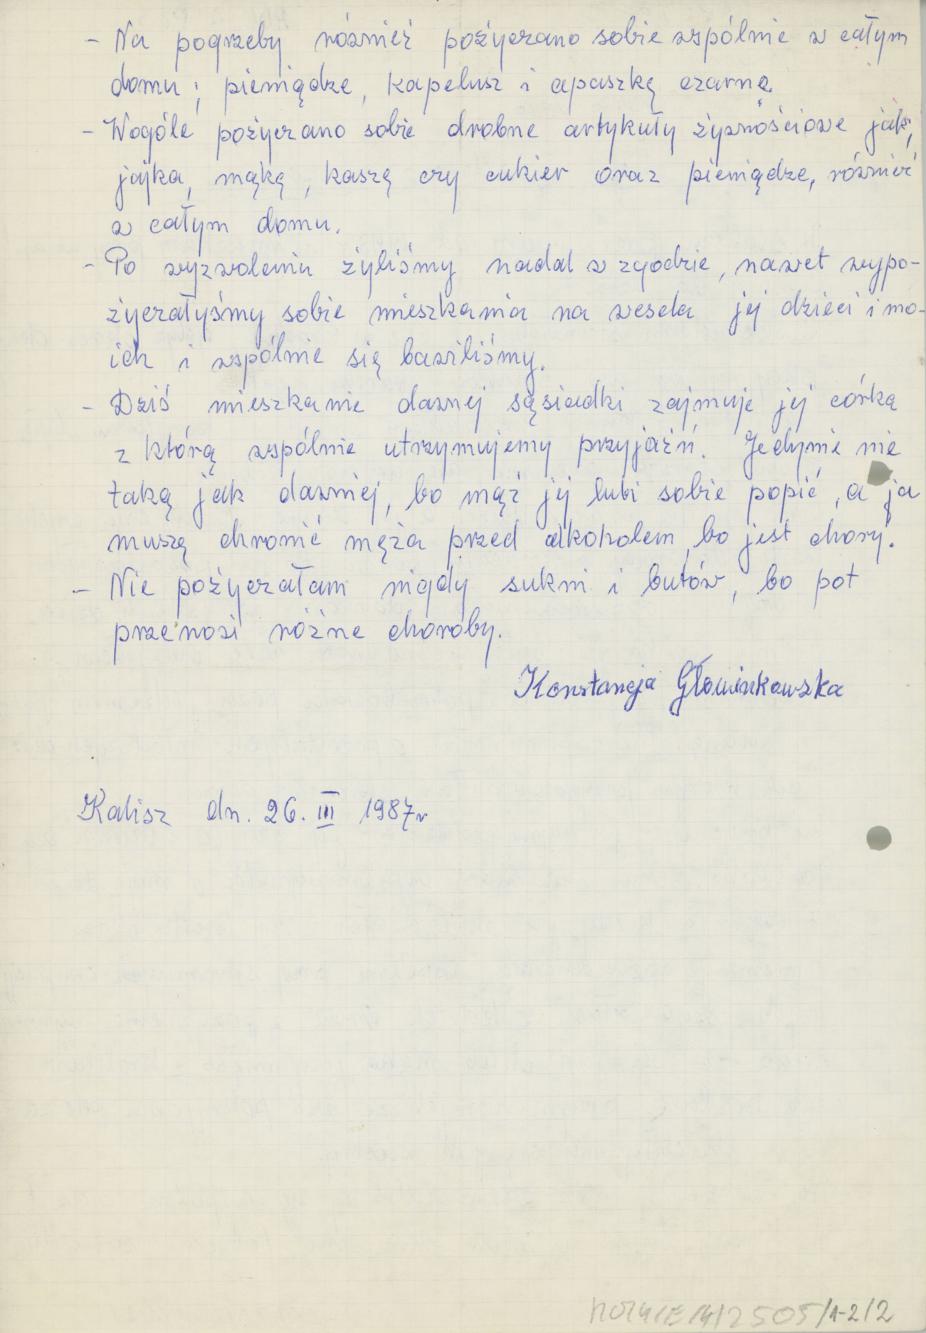 - Na pogrzeby również pożyczano sobie wspólnie w całym
domu; pieniądze, kapelusz i apaszkę czarną.
- Wogóle pożyczano sobie drobne artykuły żywnościowe jak;
jajka, mąkę, kaszę czy cukier oraz pieniądze, również
w całym domu.
- Po wyzwoleniu żyliśmy nadal w zgodzie, nawet wypo-
życzałyśmy sobie mieszkania na wesela jej dzieci i mo-
ich i wspólnie się bawiliśmy.
- Dziś mieszkanie dawnej sąsiadki zajmuje jej córka
z którą wspólnie utrzymujemy przyjaźń. Jedynie nie
taką jak dawniej, bo mąż jej lubi sobie popić, a ja
muszę chronić męża przed alkoholem, bo jest chory.
- Nie pożyczałam nigdy sukni i butów, bo pot
przenosi różne choroby.
Konstancja Głowinkowska
Kalisz dn. 26. III 1987r
2505/1-2/2